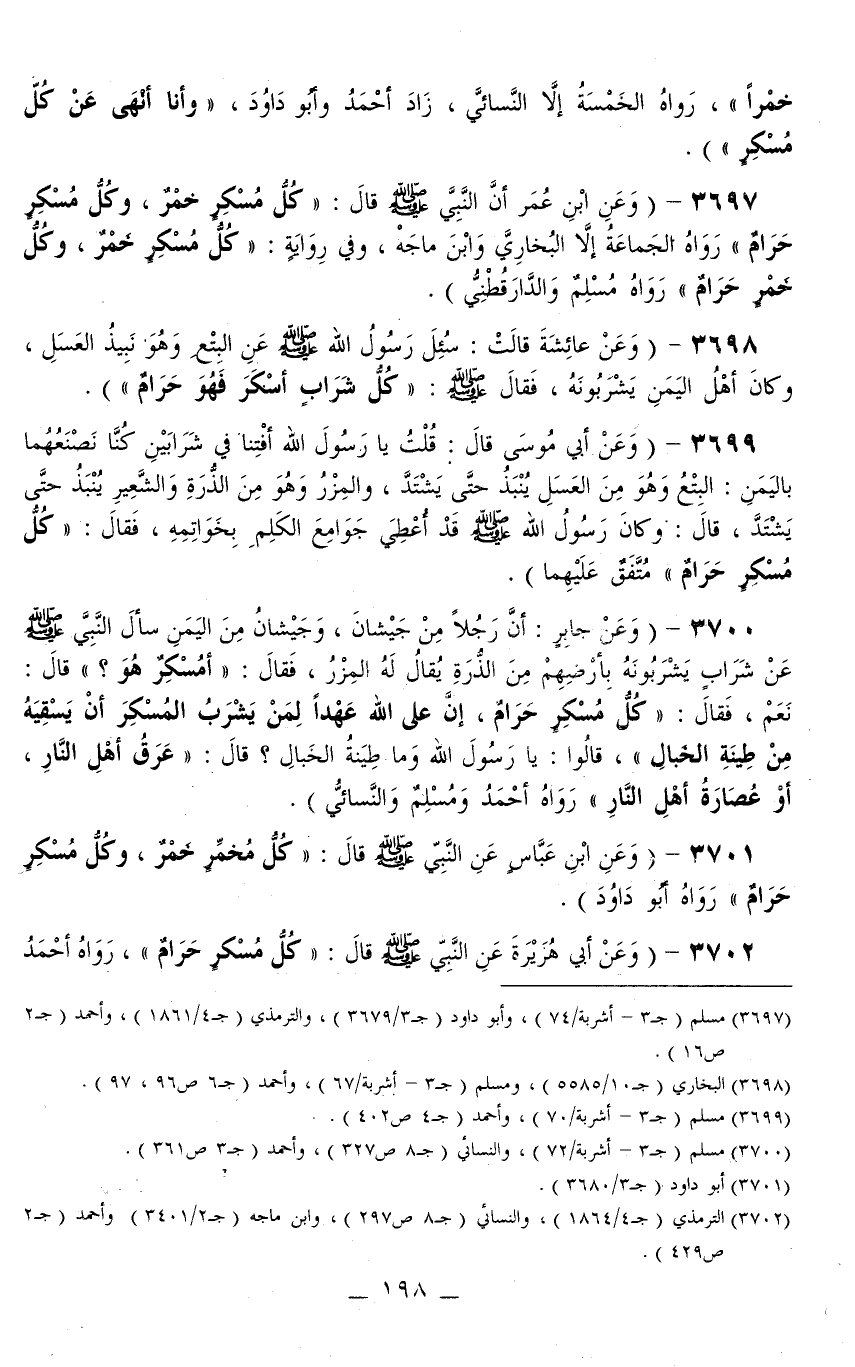 خمْراً » ، رَواهُ الخَمْسَةُ إلَّا النَّسائيَّ ، زَادَ أحْمَدُ وأبُو دَاوُدَ ، « وأنا أنْهَى عَنْ كُلّ
مُسْكِرٍ » ) .
٣٦٩٧ – ( وَعَنِ ابْنِ عُمَر أنَّ النَّبِيَّ ﷺ قالَ : « كُلُّ مُسْكِرٍ خمْرٌ ، وكُلُّ مُسْكِرٍ
حَرَامٌ » رَوَاهُ الجَماعَةُ إلَّا البُخاريَّ وَابْنَ ماجَهْ ، وفي رِوَايَةٍ : « كُلُّ مُسْكِرٍ خَمْرٌ ، وكُلُّ
خَمْرٍ حَرَامٌ » رَوَاهُ مُسْلِمٌ وَالدَّارَقُطْنِيُّ ) .
٣٦٩٨ – ( وَعَنْ عائِشَةَ قالَتْ : سُئِلَ رَسُولُ الله ﷺ عَنِ البِتْعِ وَهُوَ نَبِيذُ العَسَلِ ،
وكانَ أهْلُ اليَمَنِ يَشْرَبُونَهُ ، فَقالَ ﷺ : « كُلُّ شَرَابٍ أسْكَرَ فَهُوَ حَرَامٌ » ) .
٣٦٩٩ – ( وَعَنْ أبي مُوسَى قالَ : قُلْتُ يا رَسُولَ الله أفْتِنا في شَرَابَيْنِ كُنَّا نَصْنَعُهُما
باليَمَنِ : البِتْعُ وَهُوَ مِنَ العَسَلِ يُنْبَذُ حتَّى يَشْتَدَّ ، والمِزْرُ وَهُوَ مِنَ الذُّرَةِ وَالشَّعِيرِ يُنْبَذُ حتَّى
يَشْتَدَّ ، قالَ : وكانَ رَسُولُ الله ﷺ قَدْ أُعْطِيَ جَوَامِعَ الكَلِمِ بِخَوَاتِمِهِ ، فَقالَ : « كُلُّ
مُسْكِرٍ حَرَامٌ » مُتَّفَقٌ عَلَيْهِما ) .
٣٧٠٠ – ( وَعَنْ جابِرٍ : أنَّ رَجُلاً مِنْ جَيْشانَ ، وَجَيْشانُ مِنَ اليَمَنِ سألَ النَّبِيَّ ﷺ
عَنْ شَرَابٍ يَشْرَبُونَهُ بِأرْضِهِمْ مِنَ الذُّرَةِ يُقالُ لَهُ المِزْرُ ، فَقالَ : « أمُسْكِرٌ هُوَ ؟ » قالَ :
نَعَمْ ، فَقالَ : « كُلُّ مُسْكِرٍ حَرَامٌ ، إنَّ على الله عَهْداً لِمَنْ يَشْرَبُ المُسْكِرَ أنْ يَسْقِيَهُ
مِنْ طِينَةِ الخَبالِ » ، قالُوا : يا رَسُولَ الله وَما طِينَةُ الخَبالِ ؟ قالَ : « عَرَقُ أهْلِ النَّارِ ،
أوْ عُصَارَةُ أهْلِ النَّارِ » رَوَاهُ أحْمَدُ وَمُسْلِمٌ وَالنَّسائيُّ ) .
٣٧٠١ – ( وَعَنِ ابْنِ عَبَّاسٍ عَنِ النَّبِيّ ﷺ قالَ : « كُلُّ مُخمِّرٍ خَمْرٌ ، وكُلُّ مُسْكِرٍ
حَرَامٌ » رَوَاهُ أبُو دَاوُدَ ) .
٣٧٠٢ – ( وَعَنْ أبي هُرَيْرَةَ عَنِ النَّبِيّ ﷺ قالَ : « كُلُّ مُسْكِرٍ حَرَامٌ » ، رَوَاهُ أحْمَدُ
(٣٦٩٧) مسلم ( جـ٣ – أشربة/٧٤ ) ، وأبو داود ( جـ٣/٣٦٧٩ ) ، والترمذي ( جـ٤/١٨٦١ ) ، وأحمد ( جـ٢
ص١٦ ) .
(٣٦٩٨) البخاري ( جـ١٠/٥٥٨٥ ) ، ومسلم ( جـ٣ – أشربة/٦٧ ) ، وأحمد ( جـ٦ ص٩٦ ، ٩٧ ) .
(٣٦٩٩) مسلم ( جـ٣ – أشربة/٧٠ ) ، وأحمد ( جـ٤ ص٤٠٢ ) .
(٣٧٠٠) مسلم ( جـ٣ – أشربة/٧٢ ) ، والنسائي ( جـ٨ ص٣٢٧ ) ، وأحمد ( جـ٣ ص٣٦١ ) .
(٣٧٠١) أبو داود ( جـ٣/٣٦٨٠ ) .
(٣٧٠٢) الترمذي ( جـ٤/١٨٦٤ ) ، والنسائي ( جـ٨ ص٢٩٧ ) ، وابن ماجه ( جـ٢/٣٤٠١ ) وأحمد ( جـ٢
ص٤٢٩ ) .
— ١٩٨ —